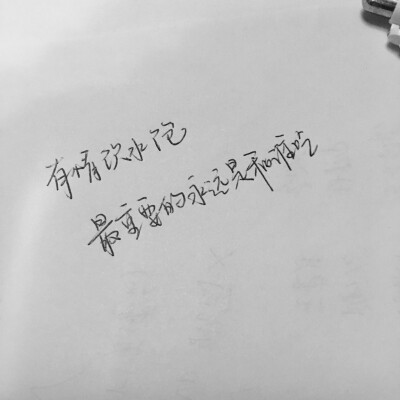 有情饮水饱
最重要的永远是和谁吃